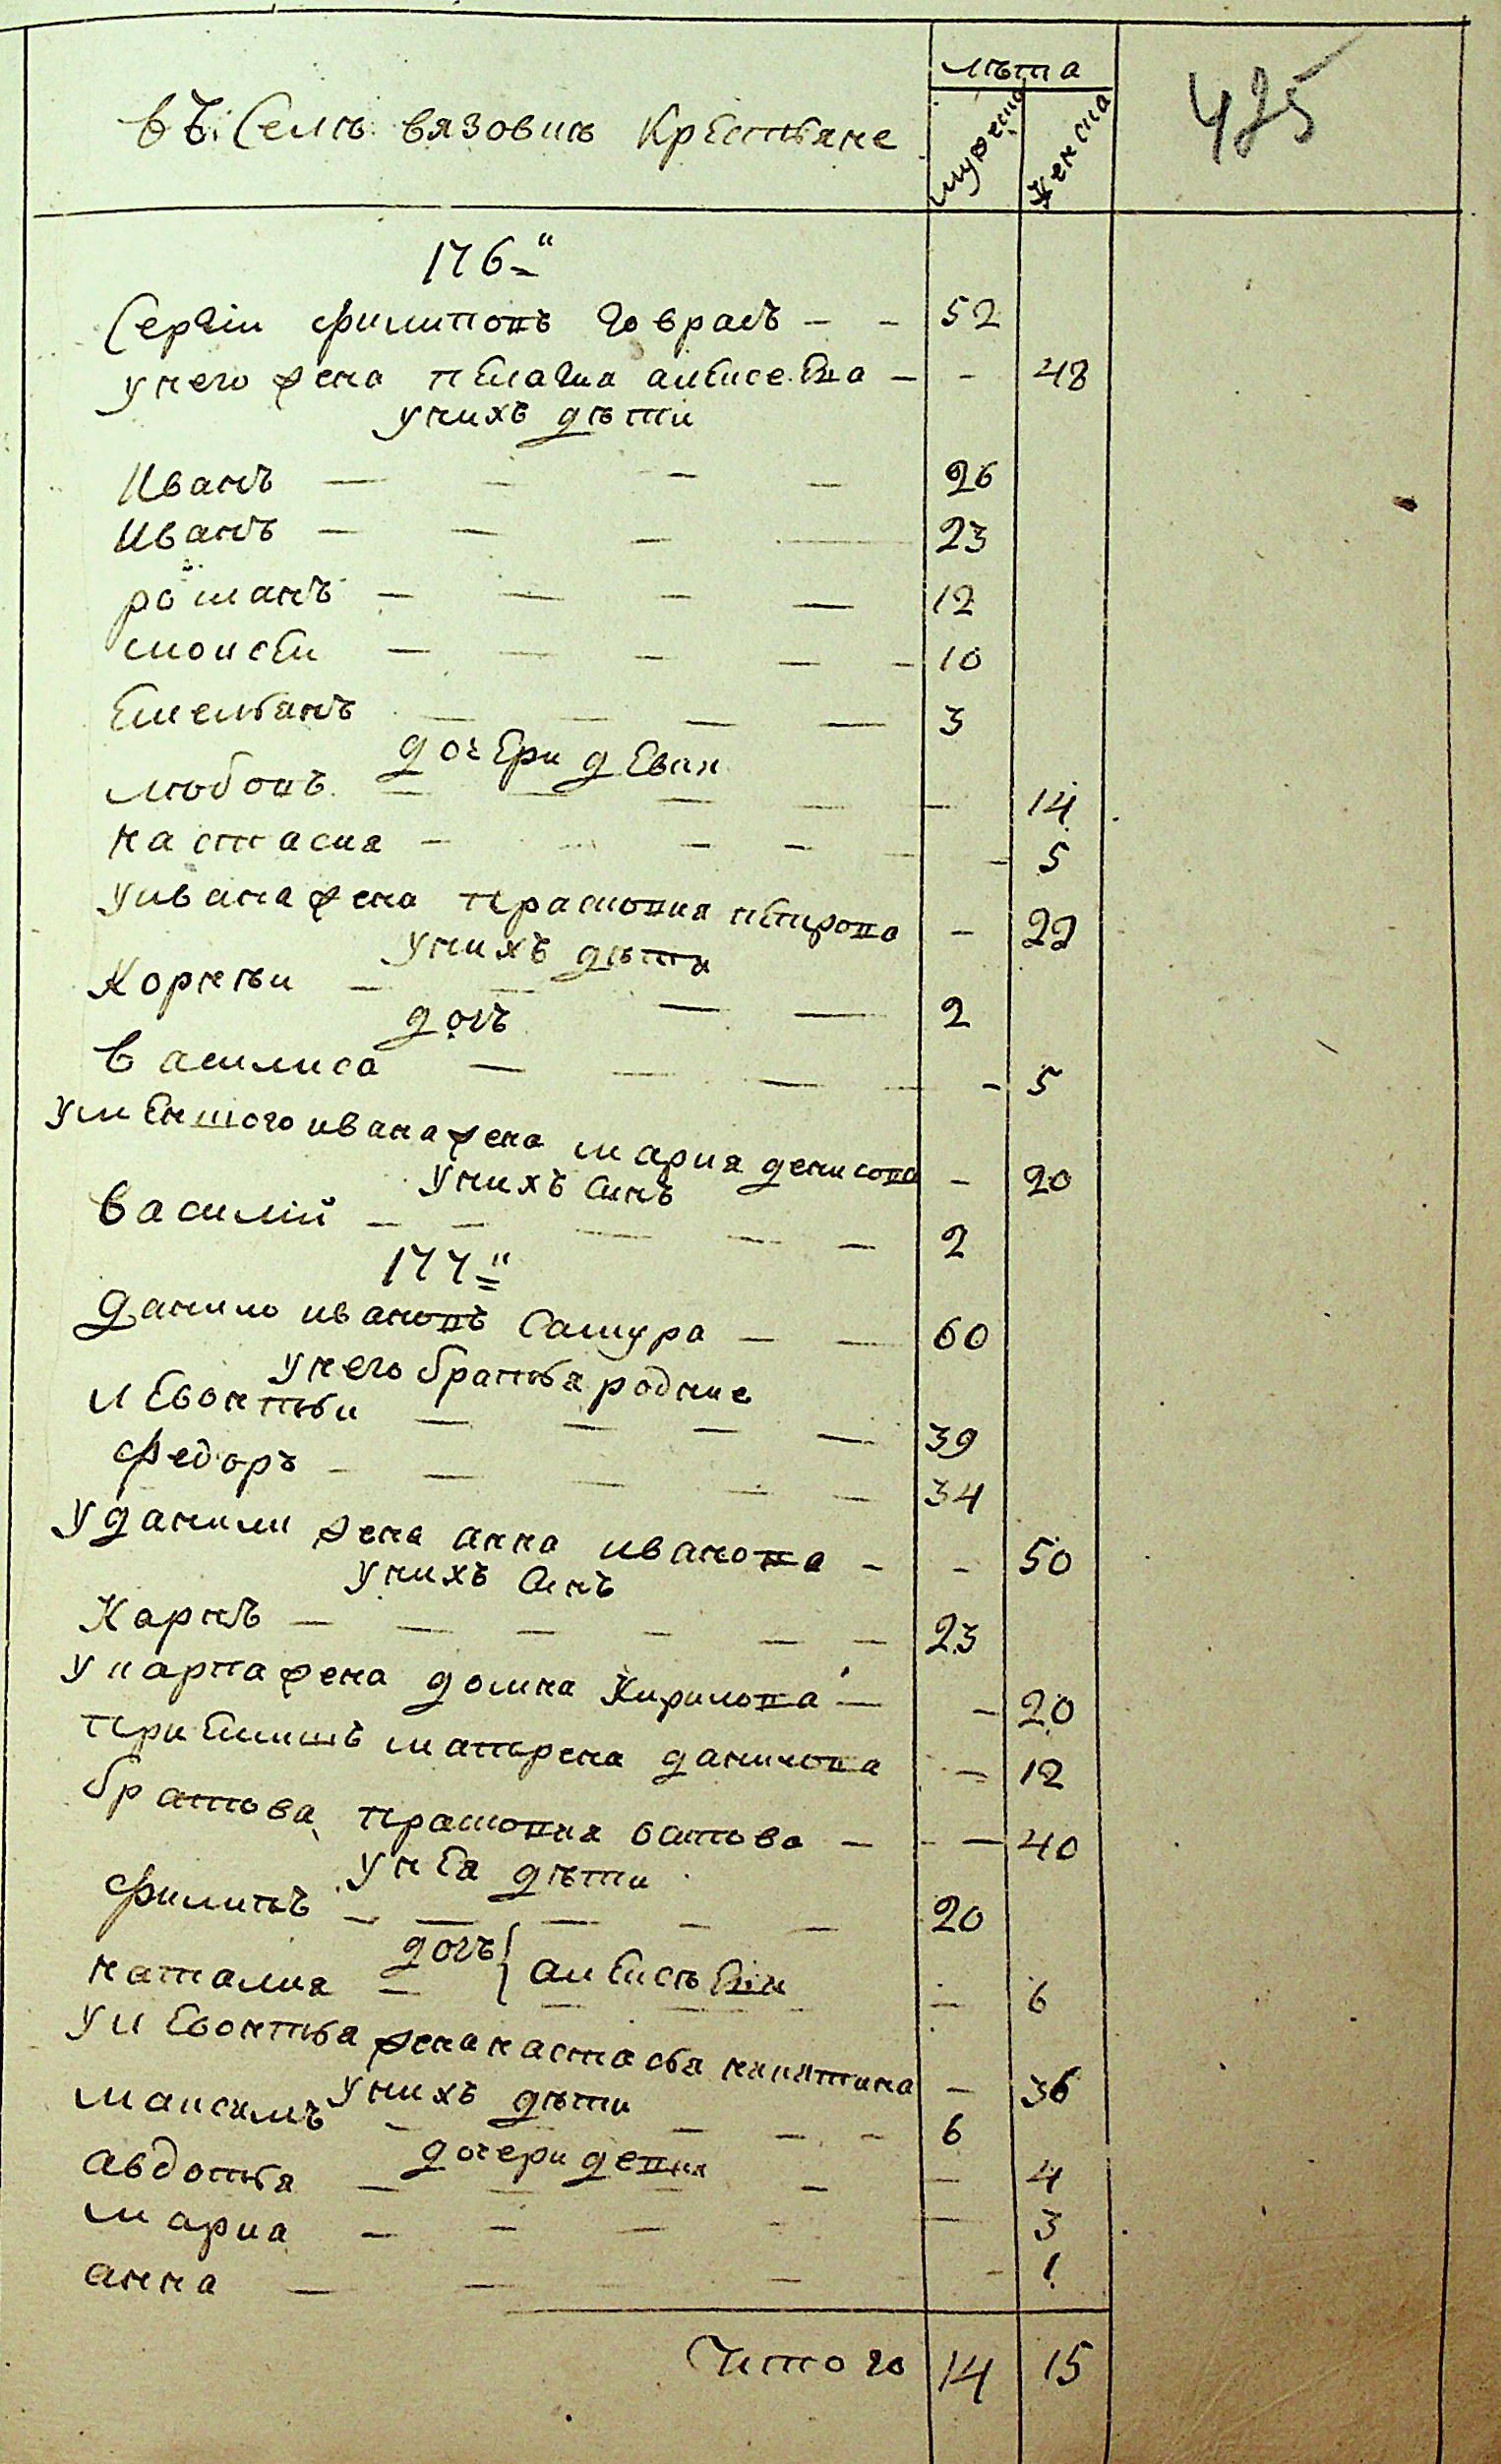 лѣта
425
въ Селѣ вязовкѣ крестьяне
мужеска
женска
176
Сергіи филиповъ Говраль 52
у него жена пелагиа алексеева 48
у нихъ дѣти
Иванъ 26
Иванъ 23
романъ 12
моисеи 10
Емельанъ 3
дочери девки
любовъ 14
настасиа 5
у ивана жена прасковия петрова 22
у нихъ дѣти
Корнѣи 2
дочъ
василиса 5
у меншого ивана жена мария денисова 20
у нихъ синъ
василій 2
177
данило ивановъ Самура 60
у него братья родние
Левонтьи 39
федоръ 34
у данили жена анна иванова 50
у нихъ синъ
Карпъ 23
у карпа жена домна Кирилова 20
приемишъ матрена данилова 12
братова прасковия вдова 40
у нея дѣти
филипъ 20
дочъ
наталия алексѣеви 6
у левонтья жена настасья никитина 36
у нихъ дѣти
максимъ 6
дочери девки
авдотья 4
мариа 3
анна 1
Итого 14 15